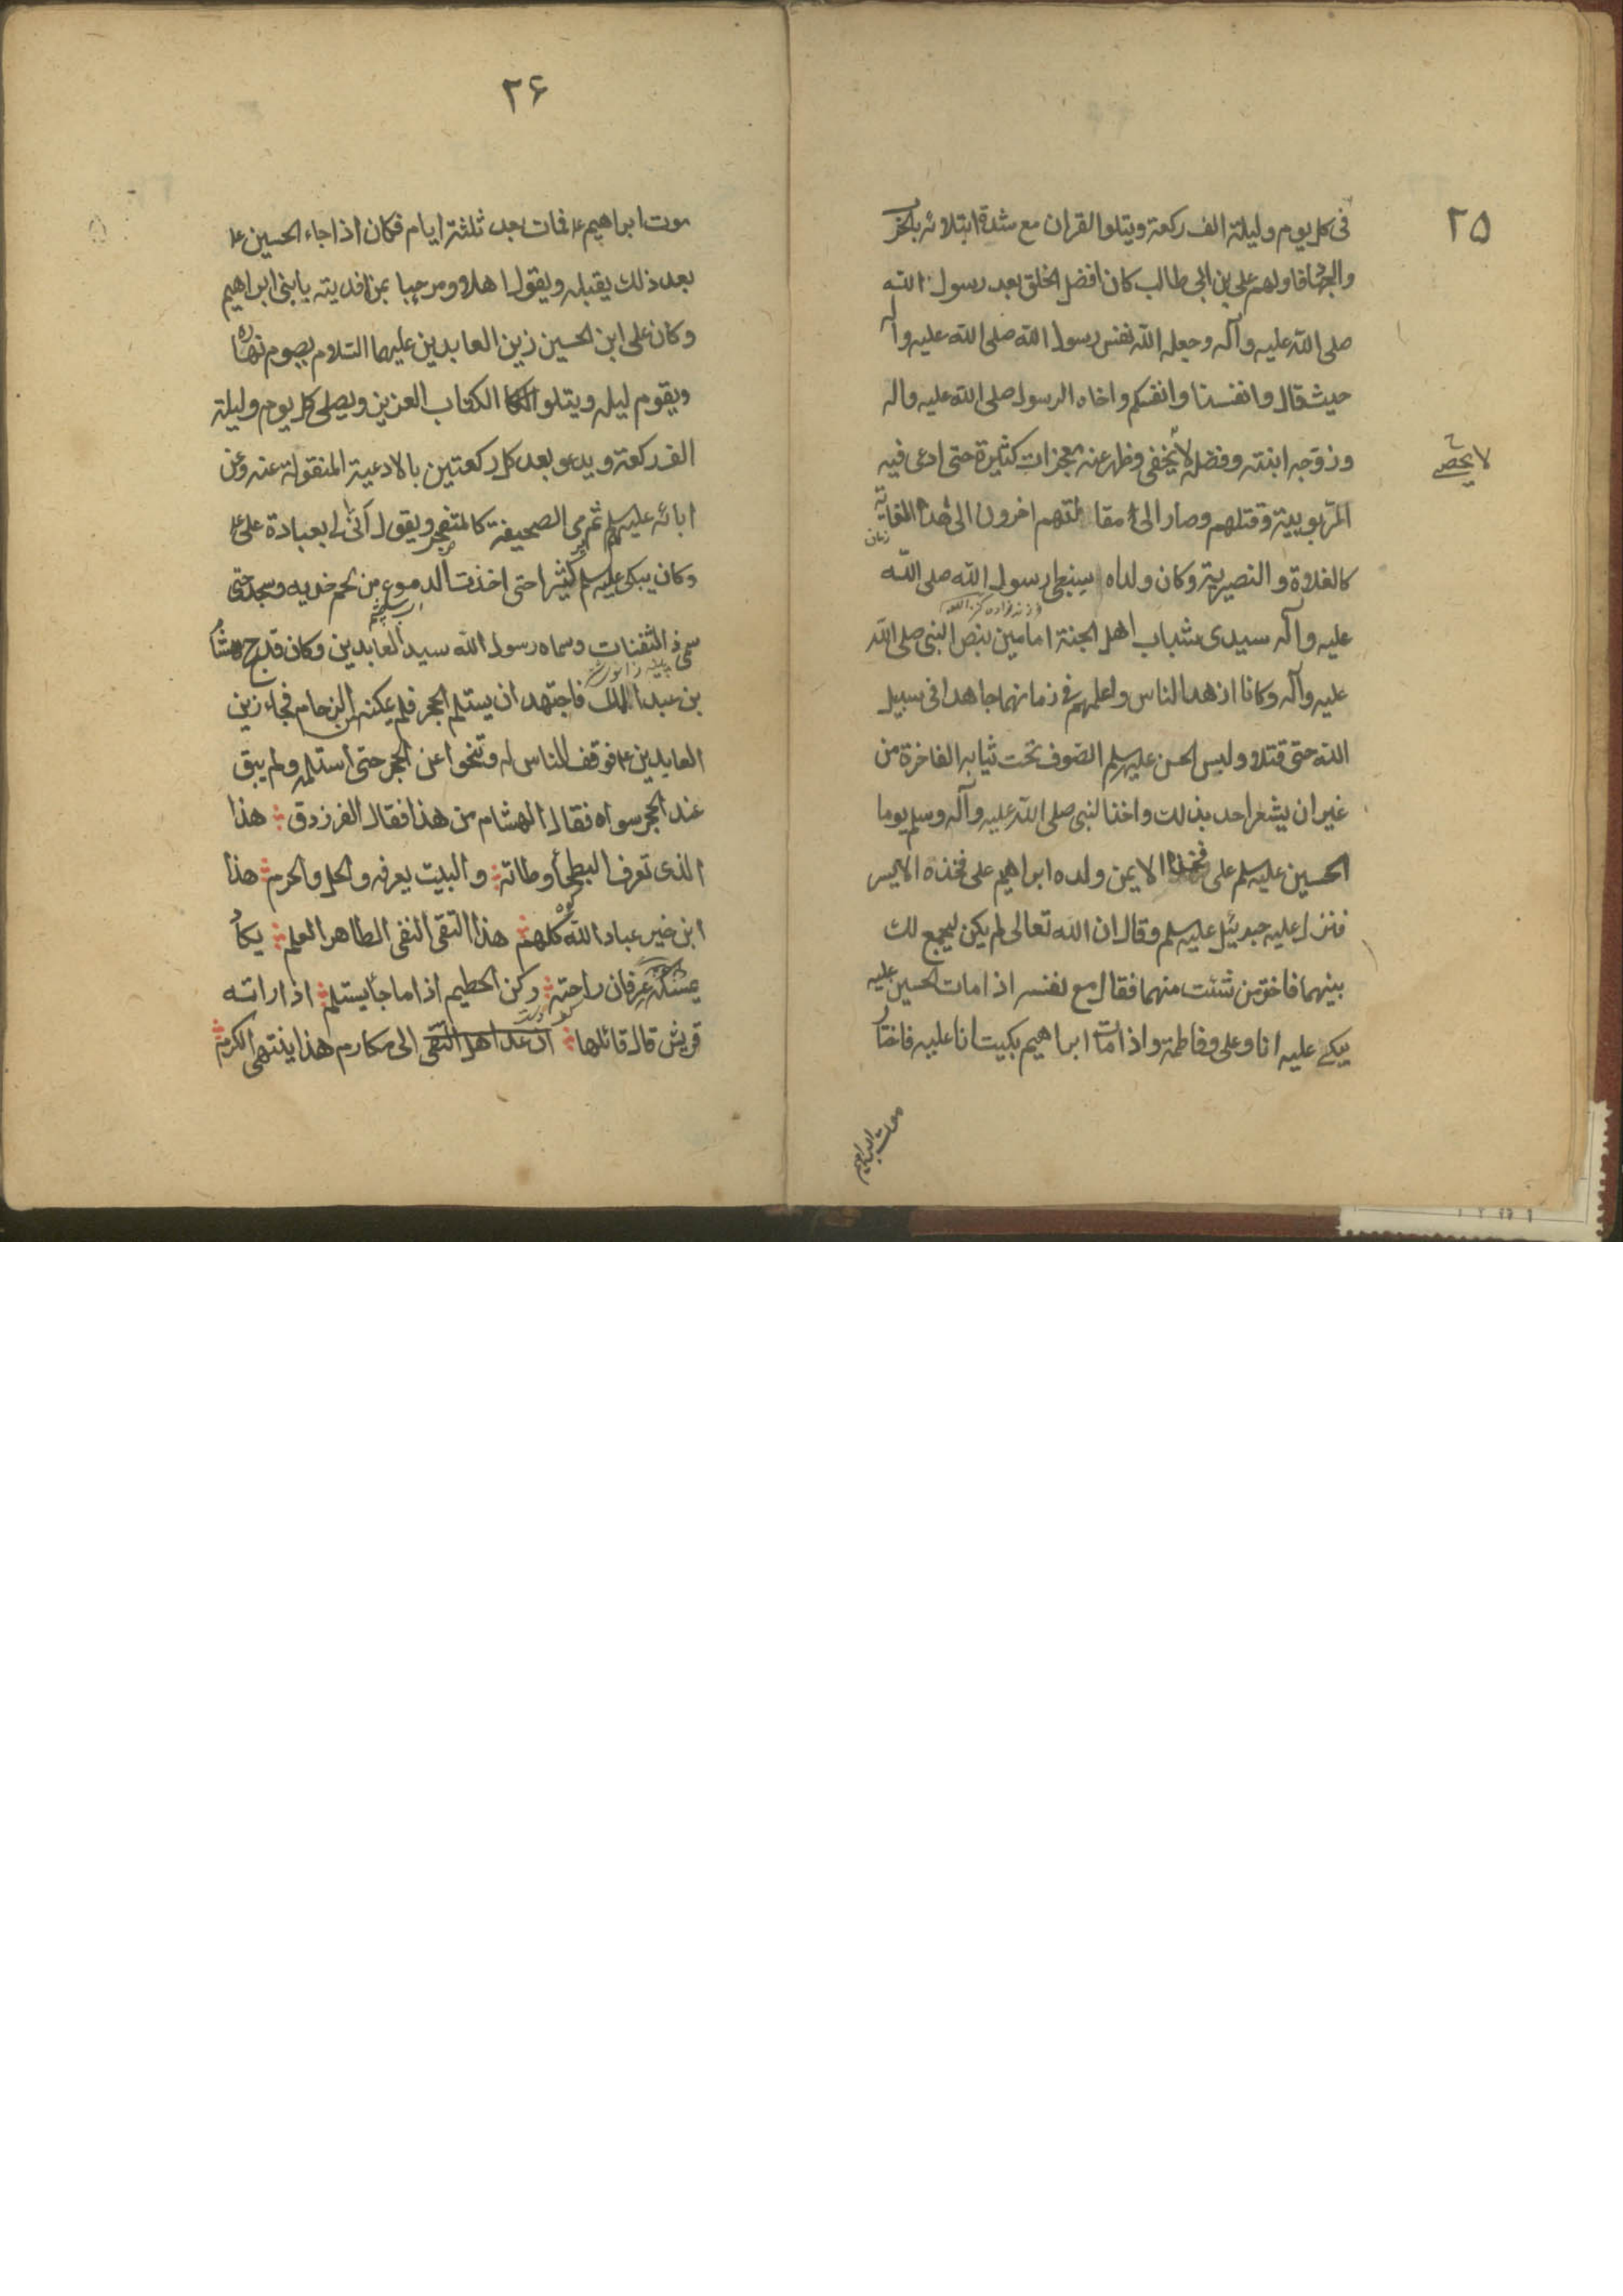 ٢٥
فى كل يوم وليلة الف ركعة ويتلو القران مع شدة ابتلائه بالحرب
والجهاد فاولهم على بن ابى طالب كان افضل الخلق بعد رسول الله
صلى الله عليه وآله وجعله الله نفس رسول الله صلى الله عليه وآله
حيث قال وانفسنا وانفسكم واخاه الرسول صلى الله عليه واله
وزوجه ابنته وفضله لا يخفى وظهر عنه معجزات كثيرة حتى ادعى فيه
لا يحصى
الربوبية وقتلهم وصار الى مقالتهم اخرون الى هذه الغاية
زمان
كالغلاة والنصيرية وكان ولداه سبطى رسول الله صلى الله
عليه وآله سيدى شباب اهل الجنة امامين بنص النبى صلى الله
عليه وآله وكانا ازهد الناس واعلمهم فى زمانهما جاهدا فى سبيل
الله حتى قتلا ولبس الحسن عليه سلم الصوف تحت ثيابه الفاخرة من
غير ان يشعر احد بذلك واخذ النبى صلى الله عليه وآله وسلم يوما
الحسين عليه سلم على فخذه الايمن وولده ابراهيم على فخذه الايسر
فنزل عليه جبرئيل عليه سلم وقال ان الله تعالى لم يكن ليجمع لك
بينهما فاختر من شئت منهما فقال مع نفسه اذا مات الحسين عليه
يبكى عليه انا وعلى وفاطمة واذا مات ابراهيم بكيت انا عليه فاختار
موت ابراهيم
٢۶
موت ابراهيم ع فمات بعد ثلثة ايام فكان اذا جاء الحسين ع
بعد ذلك يقبله ويقول اهلا ومرحبا بمن افديته يا بنى ابراهيم
وكان على ابن الحسين زين العابدين عليهما السلام يصوم نهاره
ويقوم ليله ويتلو الكتاب العزيز ويصلى كل يوم وليلة
الف ركعة ويدعو بعد كل ركعتين بالادعية المنقولة عنه وعن
ابائه عليهم سلم ثم يرمى الصحيفة كالمتضجر ويقول انى لى بعبادة على ع
وكان يبكى عليه سلم كثيرا حتى اخذت الدموع من لحم خديه وسجد حتى
سمى ذا الثفنات وسماه رسول الله سيد العابدين وكان قد حج هشام
بن عبد الملك فاجتهد ان يستلم الحجر فلم يمكنه من الزحام فجاء زين
العابدين ع فوقف الناس له وتنحوا عن الحجر حتى استلمه ولم يبق
عند الحجر سواه فقال الهشام من هذا فقال الفرزدق هذا
الذى تعرف البطحأ وطاته والبيت يعرفه والحل والحرم هذا
ابن خير عباد الله كلهم هذا التقى النقى الطاهر العلم يكاد
يمسكه عرفان راحته ركن الحطيم اذا ما جأ يستلم اذا راته
قريش قال قائلها ان عد اهل التقى الى مكارم هذا ينتهى الكرم